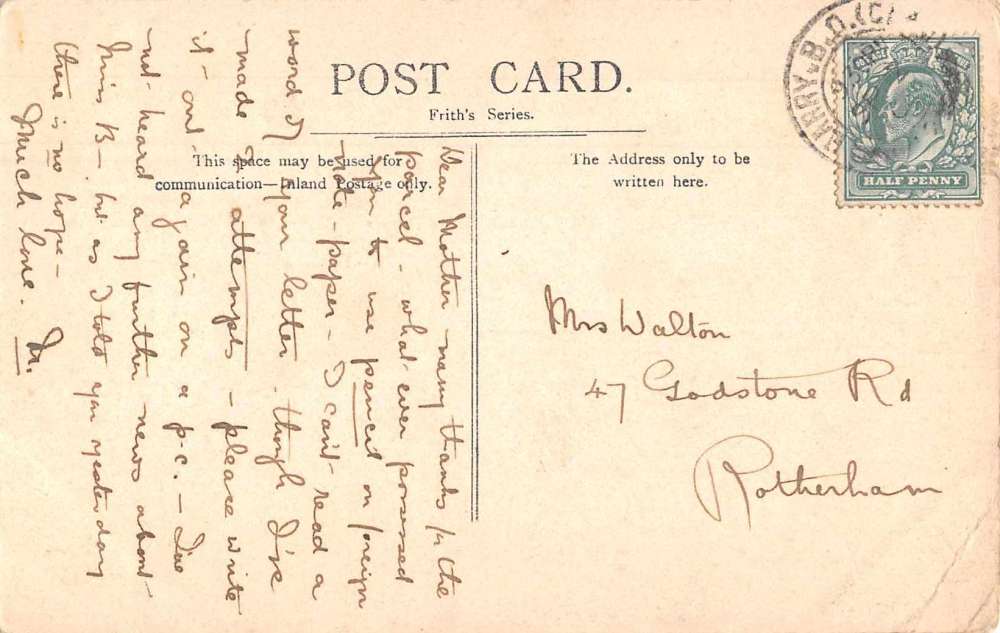 POST CARD.
Frith's Series.
This space may be used for
communication—Inland Postage only.
The Address only to be
written here.
HALF PENNY
Dear Mother many thanks for the
parcel - what ever possessed
you to use pencil on foreign
note-paper - I can't read a
word of your letter - though I've
made 7 attempts - please write
it out again on a p.c. - I've
not heard any further news about
Miss B- but as I told you yesterday
there is no hope -
Much love. M.
Mrs Walton
47 Godstone Rd
Rotherham